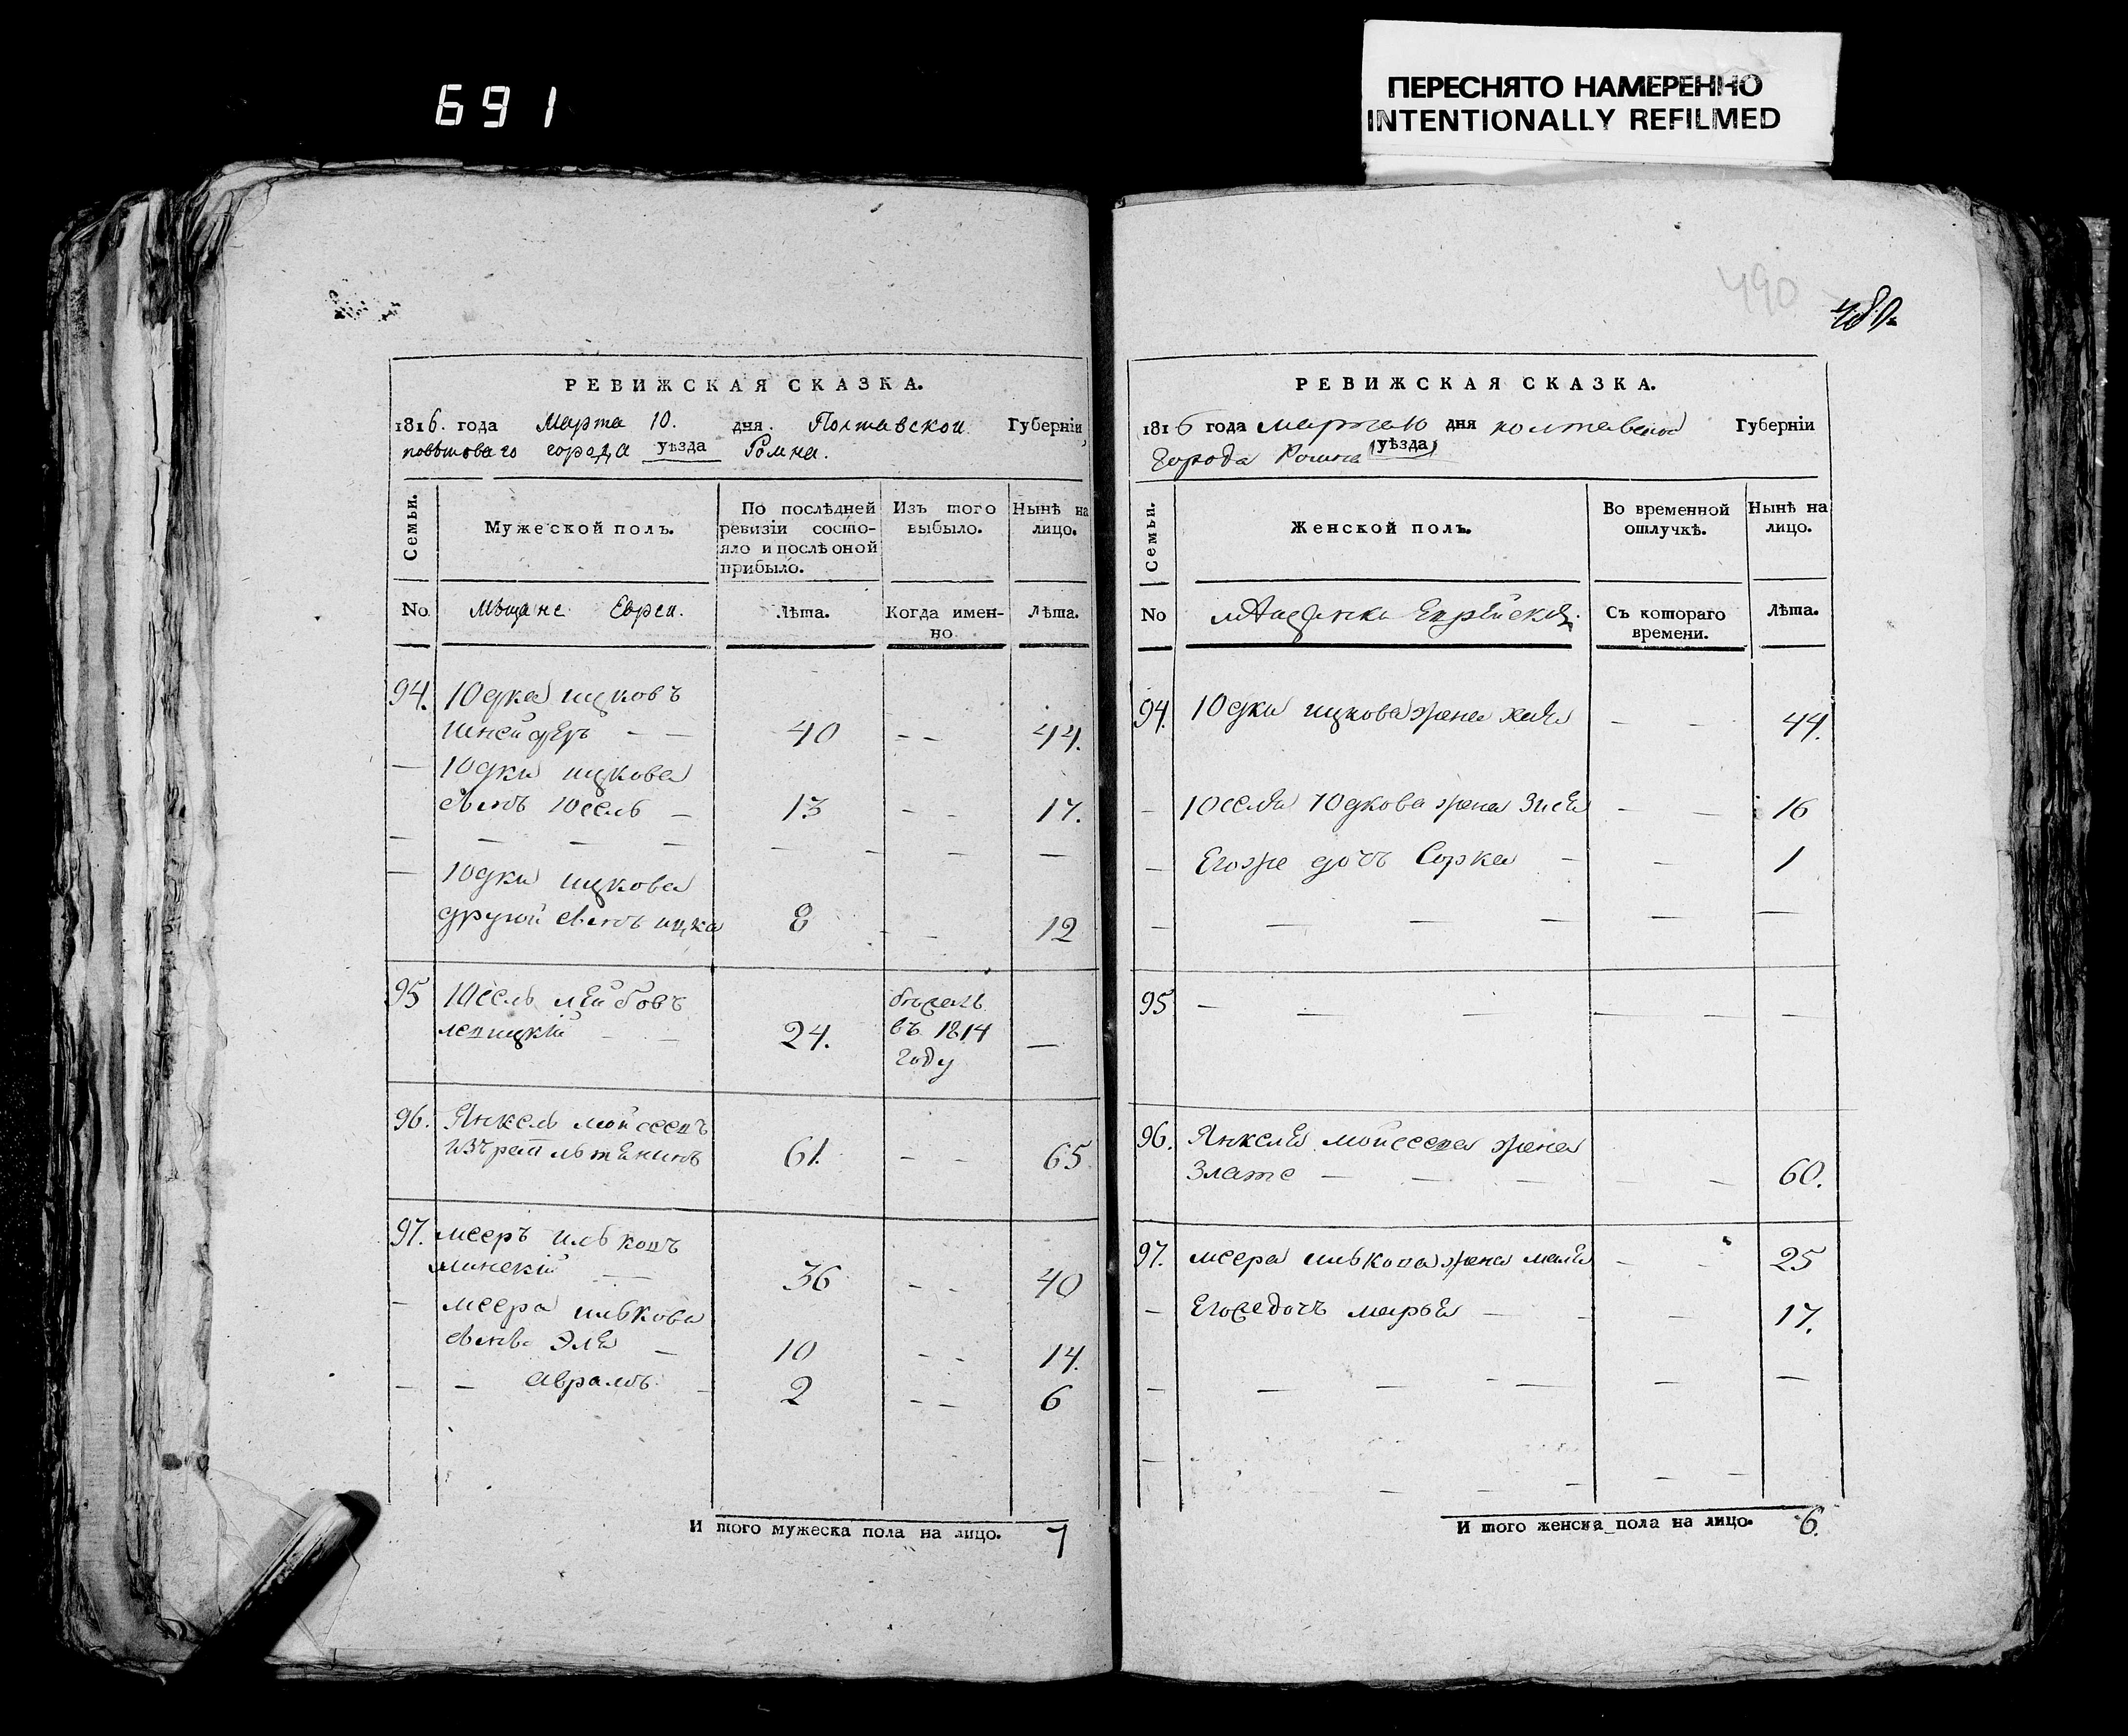 691
ПЕРЕСНЯТО НАМЕРЕННО
INTENTIONALLY REFILMED
490
480.
РЕВИЖСКАЯ СКАЗКА.
1816. года Марта 10. дня. Полтавской Губерніи,
повѣтоваго города уѣзда Ромна.
Семьи.
Мужеской полъ.
По послѣдней ревизіи состояло и послѣ оной прибыло.
Изъ того выбыло.
Нынѣ на лицо.
No Мѣщане Евреи. Лѣта. Когда именно. Лѣта.
94. Юдка ицковъ
шнейдеръ — — 40 - - 44.
— Юдки ицкова
сынъ Юсель — 13 - - 17.
— — — — — — — —
— Юдки ицкова
другой сынъ ицка 8 - - 12
95 Юсель лейбовъ
лепицкій — — 24. въ 1814 году —
96. Янкель мойсеевъ
61. - - 65.
97. мееръ илькопъ
минскій — 36 - - 40
— меера илькова
сынъ Эля — 10 - - 14.
— — Аврамъ — 2 - - 6
И того мужеска пола на лицо. 7
РЕВИЖСКАЯ СКАЗКА.
1816 года марта 10 дня полтавской Губерніи
города Ромна (уѣзда)
Семьи.
Женской полъ.
Во временной отлучкѣ.
Нынѣ на лицо.
No мѣщанки Еврейския. Съ котораго времени. Лѣта.
94. Юдки ицкова жена хая — — 44.
— Юселя Юдкова жена Зися — — 16
— Егоже дочъ Сорка — — 1
— — — — — —
95 — — — — — —
96. Янкеля мойсеева жена
Злате — — — — — 60.
97. меера илькова жена маля — — 25
— Егоже дочъ марья — — — 17.
— — — — — —
— — — — — —
И того женска пола на лицо. 6.